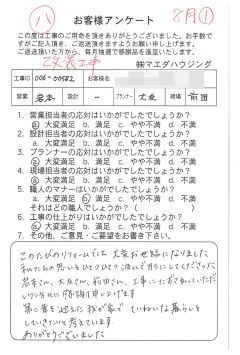 (八)
8月①
お客様アンケート
この度は工事のご用命を頂きありがとうございました。お手数で
すがご記入頂き、ご返送頂きますようお願い申し上げます。
ご返送頂いた方から、毎月抽選で感謝品を進呈いたします。
改装工事
㈱マエダハウジング
工事ID 006-00582 お客様名
営業 岩本 設計 - プランナー 大庭 現場 前田
1. 営業担当者の応対はいかがでしたでしょうか?
a 大変満足 b 満足 c やや不満 d 不満
2. 設計担当者の応対はいかがでしたでしょうか?
a 大変満足 b 満足 c やや不満 d 不満
3. プランナーの応対はいかがでしたでしょうか?
a 大変満足 b 満足 c やや不満 d 不満
4. 現場担当者の応対はいかがでしたでしょうか?
a 大変満足 b 満足 c やや不満 d 不満
5. 職人のマナーはいかがでしたでしょうか?
a 大変満足 b 満足 c やや不満 d 不満
それはどの職人でしょうか? ( )
6. 工事の仕上がりはいかがでしたでしょうか?
a 大変満足 b 満足 c やや不満 d 不満
7. その他、ご意見・ご要望をお書き下さい。
このたびのリフォームでは大変お世話になりました
私たちの思いをひとつひとつ汲んで形にしてくださった
岩本さん、大庭さん、前田さん、工事にたずさわっていただ
いた方々に感謝申し上げます
第二章を迎えた我が家で ていねいな暮らしを
していきたいと考えています
ありがとうございました